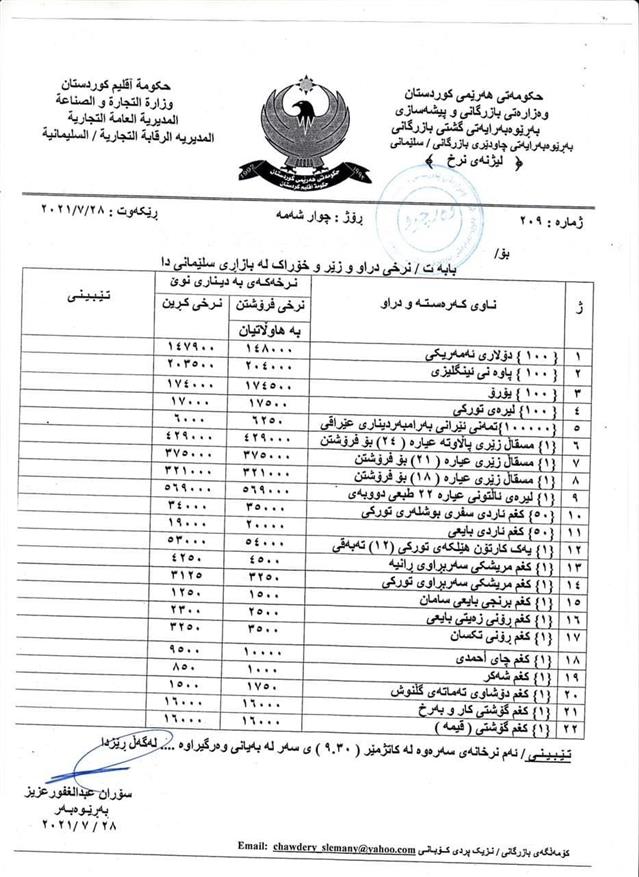 حكومەتی هەرێمی كوردستان
وەزارەتی بازرگانی و پیشەسازی
بەڕێوەبەرایەتی گشتی بازرگانی
بەڕێوەبەرایەتی چاودێری بازرگانی / سلێمانی
﴿ لیژنەی نرخ ﴾
حكومة أقليم كوردستان
وزارة التجارة و الصناعة
المديرية العامة التجارية
المديريه الرقابة التجارية / السليمانية
حكومەتی هەرێمی كوردستان
حكومة اقليم كردستان
1992
ژمارە : ٢٠٩
ڕۆژ : چوار شەمە
ڕێكەوت : ٢٠٢١/٧/٢٨
بۆ/
بابە ت / نرخی دراو و زێر و خۆراك لە بازاڕی سلێمانی دا
ژ ناوی كەرەستە و دراو نرخەكەی بە دیناری نوێ تێبینی
نرخی فرۆشتن بە هاوڵاتیان نرخی كڕین
١ {١٠٠} دۆلاری ئەمەریكی ١٤٨٠٠٠ ١٤٧٩٠٠
٢ {١٠٠} پاوە نی ئینگلیزی ٢٠٤٠٠٠ ٢٠٣٥٠٠
٣ {١٠٠} یۆرۆ ١٧٤٥٠٠ ١٧٤٠٠٠
٤ {١٠٠} لیرەی توركی ١٧٥٠٠ ١٧٠٠٠
٥ {١٠٠٠٠٠}تمەنی ئێرانی بەرامبەردیناری عێراقی ٦٢٥٠ ٦٠٠٠
٦ {١} مسقاڵ زێری پاڵاوتە عیارە ( ٢٤ ) بۆ فرۆشتن ٤٢٩٠٠٠ ٤٢٩٠٠٠
٧ {١} مسقاڵ زێری عیارە ( ٢١ ) بۆ فرۆشتن ٣٧٥٠٠٠ ٣٧٥٠٠٠
٨ {١} مسقاڵ زێری عیارە ( ١٨ ) بۆ فرۆشتن ٣٢١٠٠٠ ٣٢١٠٠٠
٩ {١} لیرەی ئاڵتونی عیارە ٢٢ طبعي دووبەی ٥٦٩٠٠٠ ٥٦٩٠٠٠
١٠ {٥٠} كغم ئاردی سفری بوشلەری توركی ٣٥٠٠٠ ٣٤٠٠٠
١١ {٥٠} كغم ئاردی بایعی ٢٠٠٠٠ ١٩٠٠٠
١٢ {١} یەك كارتۆن هێلكەی توركی (١٢) تەبەقی ٥٤٠٠٠ ٥٣٠٠٠
١٣ {١} كغم مریشكی سەربڕاوی ڕانیە ٤٥٠٠ ٤٢٥٠
١٤ {١} كغم مریشكی سەربڕاوی توركی ٣٢٥٠ ٣١٢٥
١٥ {١} كغم برنجی بایعی سامان ١٥٠٠ ١٢٥٠
١٦ {١} كغم ڕۆنی زەیتی بایعی ٢٥٠٠ ٢٣٠٠
١٧ {١} كغم ڕۆنی تكسان ٣٥٠٠ ٣٢٥٠
١٨ {١} كغم چای أحمدی ١٠٠٠٠ ٩٥٠٠
١٩ {١} كغم شەكر ١٠٠٠ ٨٥٠
٢٠ {١} كغم دۆشاوی تەماتەی گڵنوش ١٧٥٠ ١٥٠٠
٢١ {١} كغم گۆشتی كار و بەرخ ١٦٠٠٠ ١٦٠٠٠
٢٢ {١} كغم گۆشتی ( قیمە ) ١٦٠٠٠ ١٦٠٠٠
تێبینی / ئەم نرخانەی سەرەوە لە كاتژمێر ( ٩.٣٠ ) ی سەر لە بەیانی وەرگیراوە .... لەگەڵ ڕێزدا
سۆران عبدالغفورعزیز
بەڕێوەبەر
٢٠٢١/٧/٢٨
كۆمەڵگەی بازرگانی / نزیك پردی كۆبانی Email: chawdery_slemany@yahoo.com